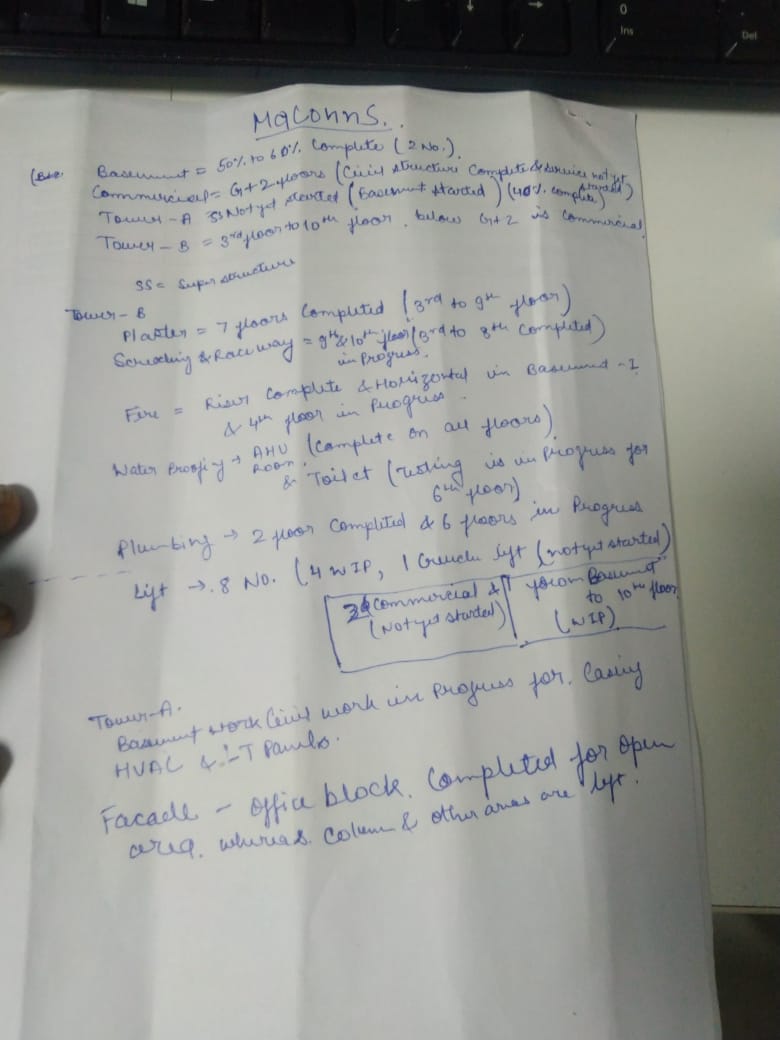 MaConns.
Basement = 50% to 60% Complete (2 No.).
Commercial = G+2 floors (Civil structure Complete & service not yet started)
Tower-A SS Not yet started (Basement started) (40% complete)
Tower-B = 3rd floor to 10th floor, below G+2 is commercial.
SS = Super structure
Tower-B
Plaster = 7 floors Completed (3rd to 9th floor)
& Race way = 9th & 10th floor (3rd to 8th completed)
in Progress.
Fire = Riser Complete & Horizontal in Basement-I
& 4th floor in Progress.
Water Proofing → AHU Room (Complete on all floors)
& Toilet (testing is in Progress for
6th floor)
Plumbing → 2 floor Completed & 6 floors in Progress
Lift → 8 No. (4 WIP, 1 lift (not yet started)
3 Commercial & 1 from Basement
(Not yet started) to 10th floor
(WIP)
Tower-A.
Basement work Civil work in Progress for.
HVAC & LT Panels.
Facade - office block. Completed for open
area. whereas. Column & other areas are left.
Ins
Del
0